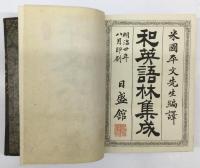 米國平文先生編譯
和英語林集成
明治廿年
八月印刷
日盛館